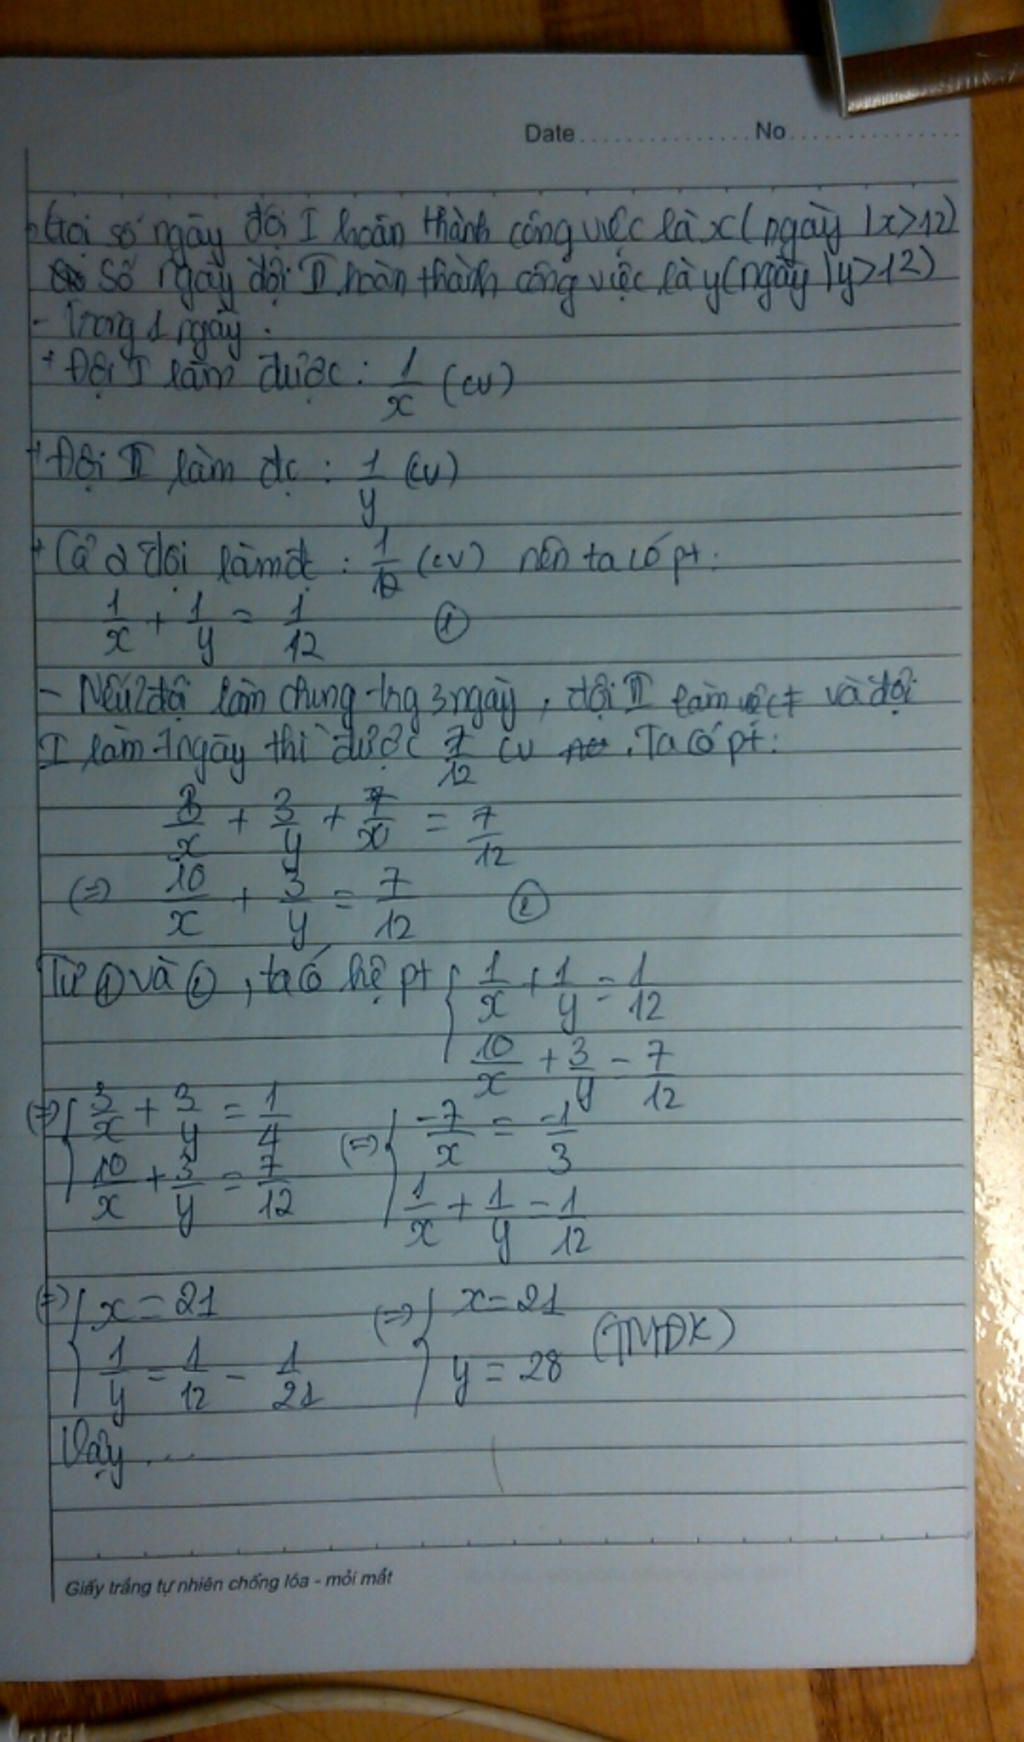 Date............... No...............
Gọi số ngày đội I hoàn thành công việc là x (ngày | x>12)
Số ngày đội II hoàn thành công việc là y (ngày | y>12)
- Trong 1 ngày :
+ Đội I làm được : 1/x (cv)
+ Đội II làm đc : 1/y (cv)
+ Cả 2 đội làm đc : 1/12 (cv) nên ta có pt :
1/x + 1/y = 1/12 (1)
- Nếu 2 đội làm chung trg 3 ngày, đội II làm việc ≠ và đội
I làm 7 ngày thì được 7/12 cv . Ta có pt :
3/x + 3/y + 7/x = 7/12
(=) 10/x + 3/y = 7/12 (2)
Từ (1) và (2), ta có hệ pt { 1/x + 1/y = 1/12
10/x + 3/y = 7/12
(=) { 3/x + 3/y = 1/4 (=) { -7/x = -1/3
10/x + 3/y = 7/12 1/x + 1/y = 1/12
(=) { x = 21 (=) { x = 21
1/y = 1/12 - 1/21 y = 28 (TMĐK)
Vậy ....
Giấy trắng tự nhiên chống lóa - mỏi mắt